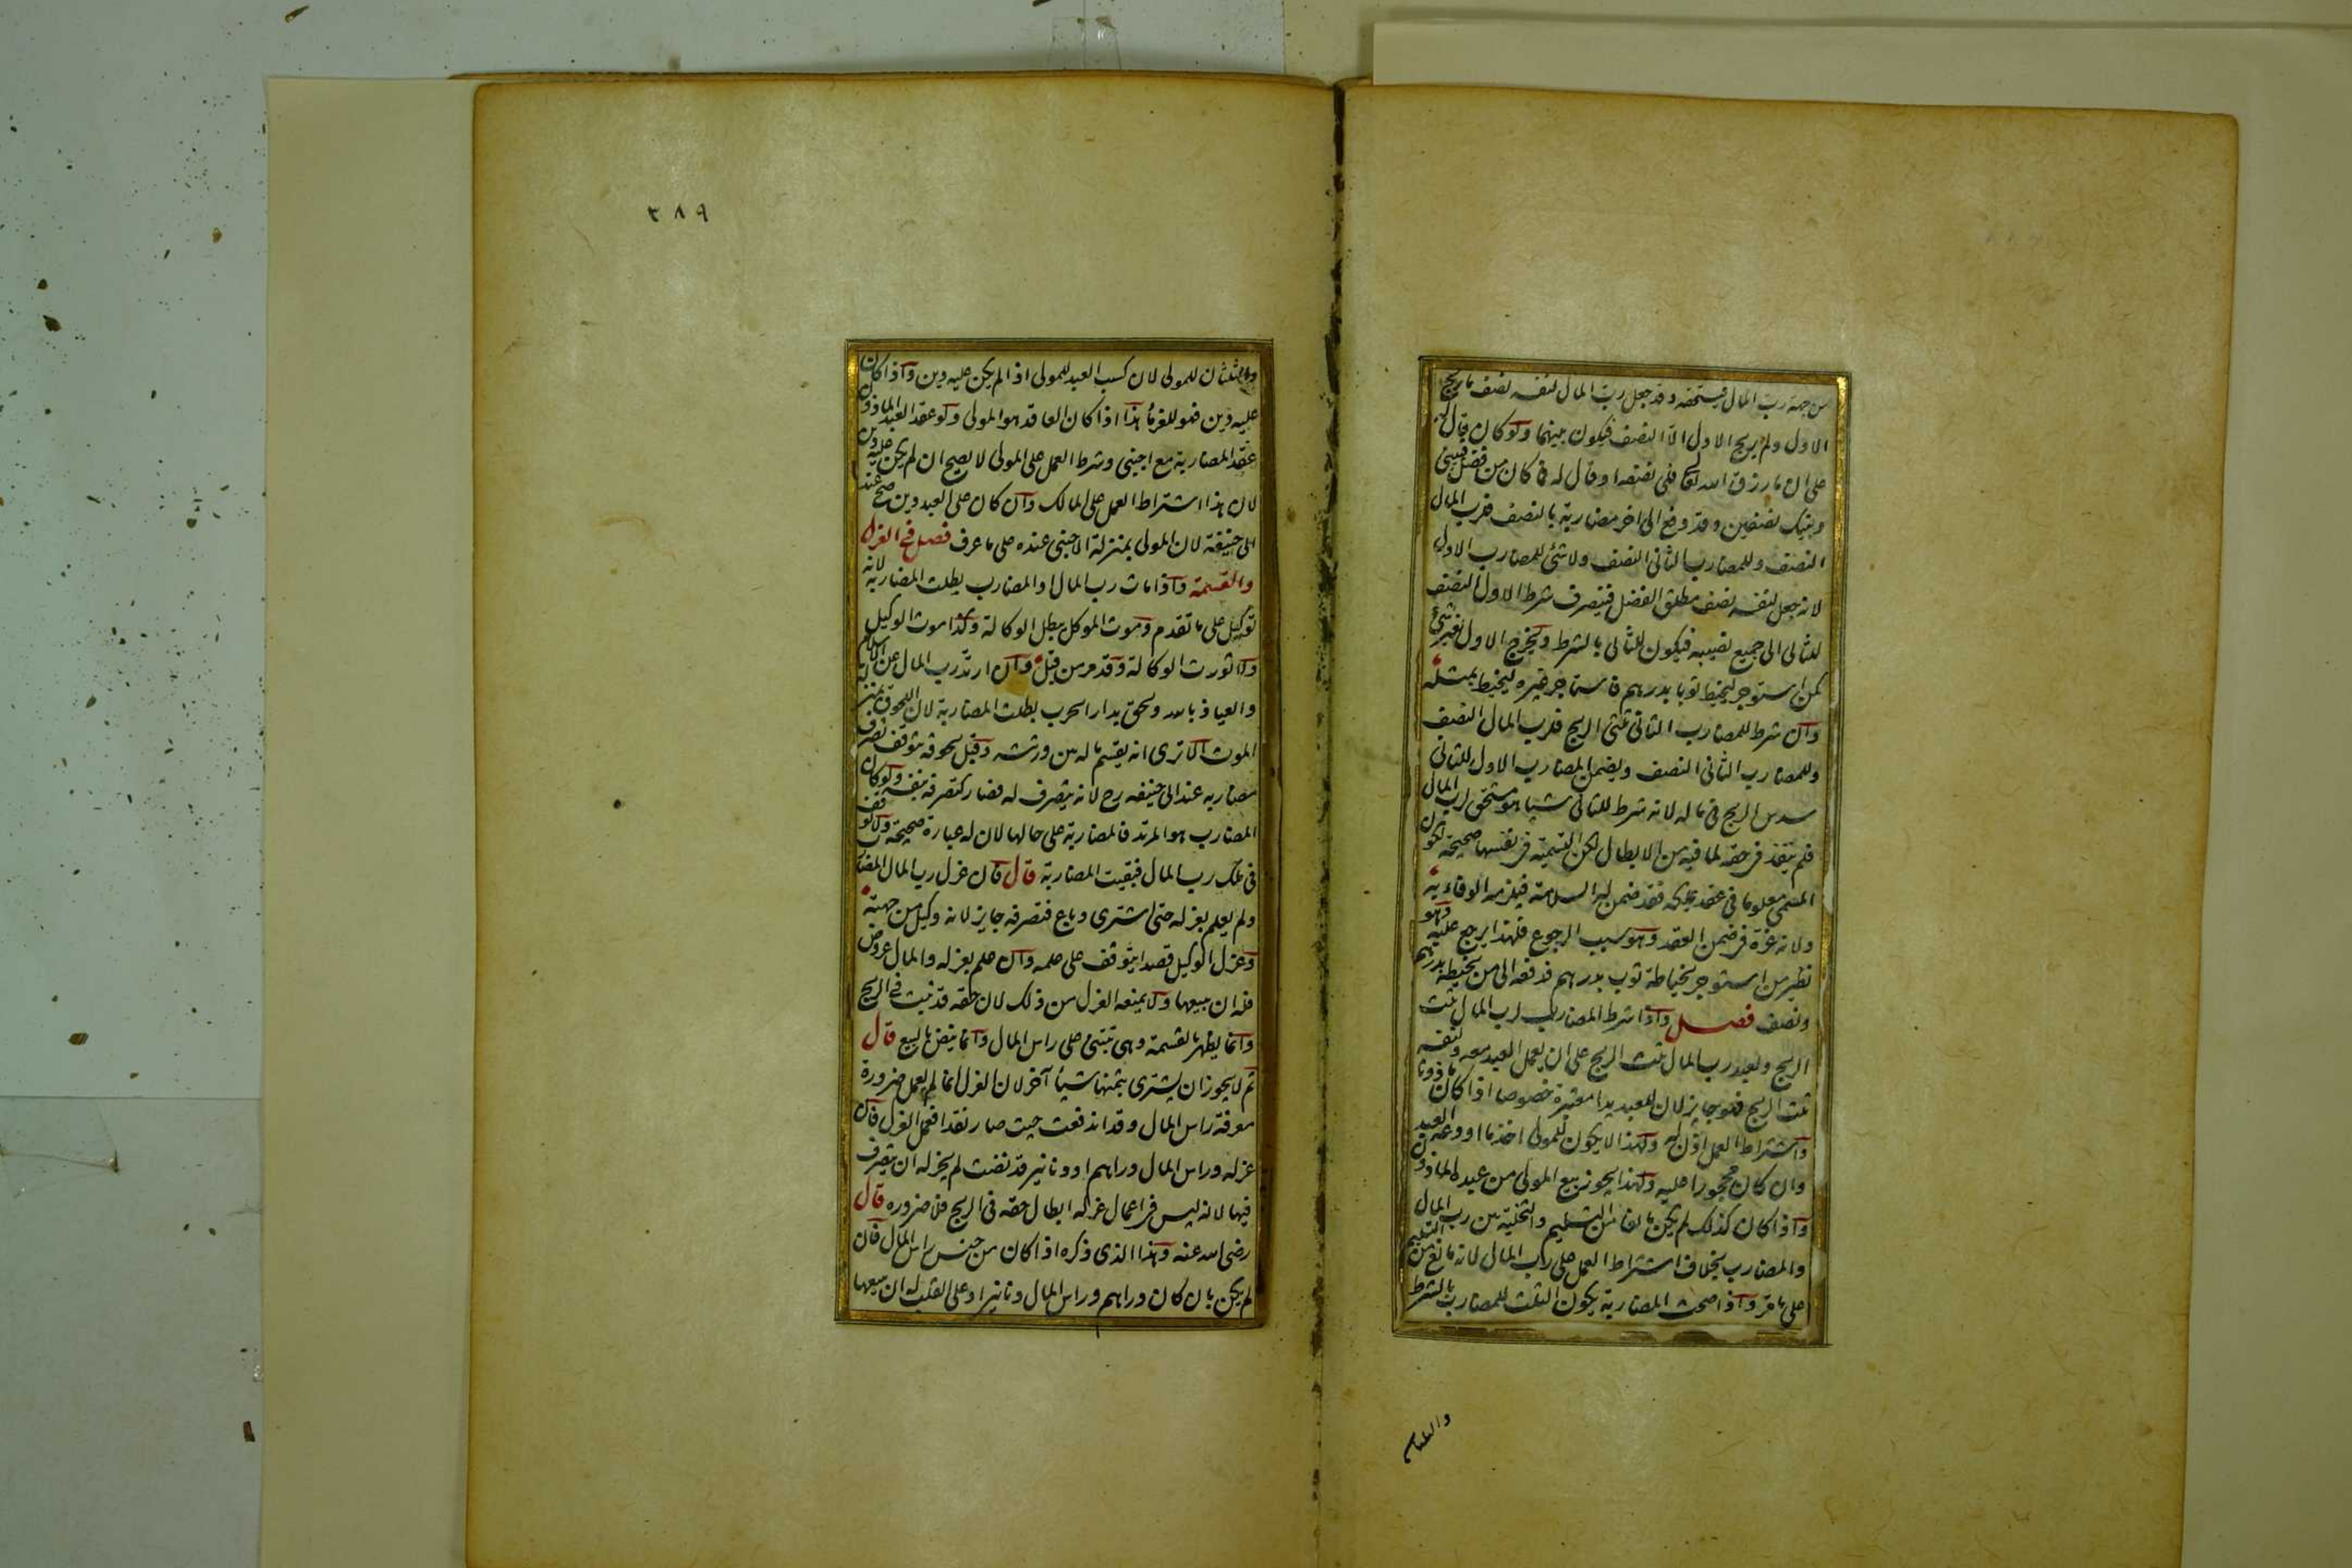 من جهة رب المال فيستحقه وقد جعل رب المال لنفسه نصف ما ربح
الاول ولم يربح الاول الا النصف فيكون بينهما ولو كان قال له
على ان ما رزق الله تعالى فلى نصفه او قال له فما كان من فضل فبينى
وبينك نصفين وقد دفع الى اخر مضاربة بالنصف فلرب المال
النصف وللمضارب الثانى النصف ولا شئ للمضارب الاول
لانه جعل لنفسه نصف مطلق الفضل فينصرف شرط الاول النصف
للثانى الى جميع نصيبه فيكون للثانى بالشرط ويخرج الاول بغير شئ
كمن استوجر ليخيط ثوبا بدرهم فاستاجر غيره ليخيط بمثله
وان شرط للمضارب الثانى ثلثى الربح فلرب المال النصف
وللمضارب الثانى النصف ويضمن المضارب الاول للثانى
سدس الربح فى ماله لانه شرط للثانى شيئا هو مستحق لرب المال
فلم ينفذ فى حقه لما فيه من الابطال لكن التسمية فى نفسها صحيحة لكون
المسمى معلوما فى عقد يملكه فقد ضمن له السلامة فيلزمه الوفاء به
ولانه غره فى ضمن العقد وهو سبب الرجوع فلهذا يرجع عليه وهو
نظير من استوجر لخياطة ثوب بدرهم فدفعه الى من يخيطه بدرهم
ونصف فصل واذا شرط المضارب لرب المال ثلث
الربح ولعبد رب المال ثلث الربح على ان يعمل العبد معه ولنفسه
ثلث الربح فهو جايز لان للعبد يدا معتبرة خصوصا اذا كان ماذونا
واشتراط العمل اذن له ولهذا لا يكون للمولى اخذ ما اودعه العبد
وان كان محجورا عليه ولهذا يجوز بيع المولى من عبده الماذون
واذا كان كذلك لم يكن مانعا من التسليم والتخلية بين رب المال
والمضارب بخلاف اشتراط العمل على رب المال لانه مانع من التسليم
على ما مر واذا صحت المضاربة يكون الثلث للمضارب بالشرط
والثلثان
٣٨٩
والثلثان للمولى لان كسب العبد للمولى اذا لم يكن عليه دين واذا كان
عليه دين فهو للغرماء هذا اذا كان العاقد هو المولى ولو عقد العبد الماذون
عقد المضاربة مع اجنبى وشرط العمل على المولى لا يصح ان لم يكن عليه دين
لان هذا اشتراط العمل على المالك وان كان على العبد دين صح عند
ابى حنيفة لان المولى بمنزلة الاجنبى عنده على ما عرف فصل فى العزل
والقسمة واذا مات رب المال او المضارب بطلت المضاربة لانه
توكيل على ما تقدم وموت الموكل يبطل الوكالة وكذا موت الوكيل
ولا تورث الوكالة وقد مر من قبل وان ارتد رب المال عن الاسلام
والعياذ بالله ولحق بدار الحرب بطلت المضاربة لان اللحوق بمنزلة
الموت الا ترى انه يقسم ماله بين ورثته وقبل لحوقه يتوقف تصرف
مضاربه عند ابى حنيفه رح لانه يتصرف له فصار كتصرفه بنفسه ولو كان
المضارب هو المرتد فالمضاربة على حالها لان له عبارة صحيحة ولا توقف
فى ملك رب المال فبقيت المضاربة قال فان عزل رب المال المضارب
ولم يعلم بعزله حتى اشترى وباع فتصرفه جايز لانه وكيل من جهته
وعزل الوكيل قصدا يتوقف على علمه وان علم بعزله والمال عروض
فله ان يبيعها ولا يمنعه العزل من ذلك لان حقه قد ثبت فى الربح
وانما يظهر بالقسمة وهى تبتنى على راس المال وانما ينض بالبيع قال
ثم لا يجوز ان يشترى بثمنها شيئا آخر لان العزل انما لم يعمل ضرورة
معرفة راس المال وقد اندفعت حيث صار نقدا فعمل العزل فان
عزله وراس المال دراهم او دنانير قد نضت لم يجز له ان يتصرف
فيها لانه ليس فى اعمال عزله ابطال حقه فى الربح فلا ضروره قال
رضى الله عنه وهذا الذى ذكره اذا كان من جنس راس المال فان
لم يكن بان كان دراهم وراس المال دنانير او على القلب له ان يبيعها